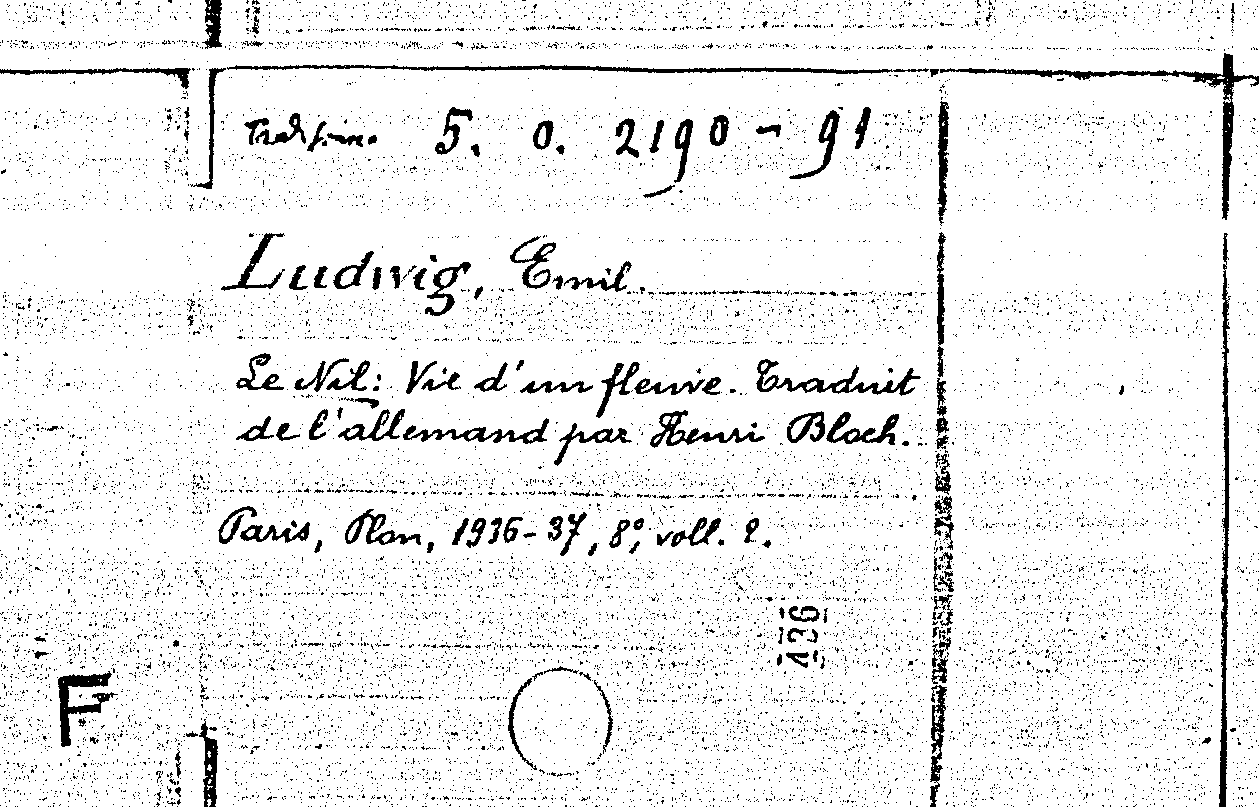 5. 0. 2190 - 91
Ludwig, Emil.
Le Nil: Vie d'un fleuve. Traduit
de l'allemand par Henri Bloch.
Paris, Plon, 1936-37, 8º, voll. 2.
426
F